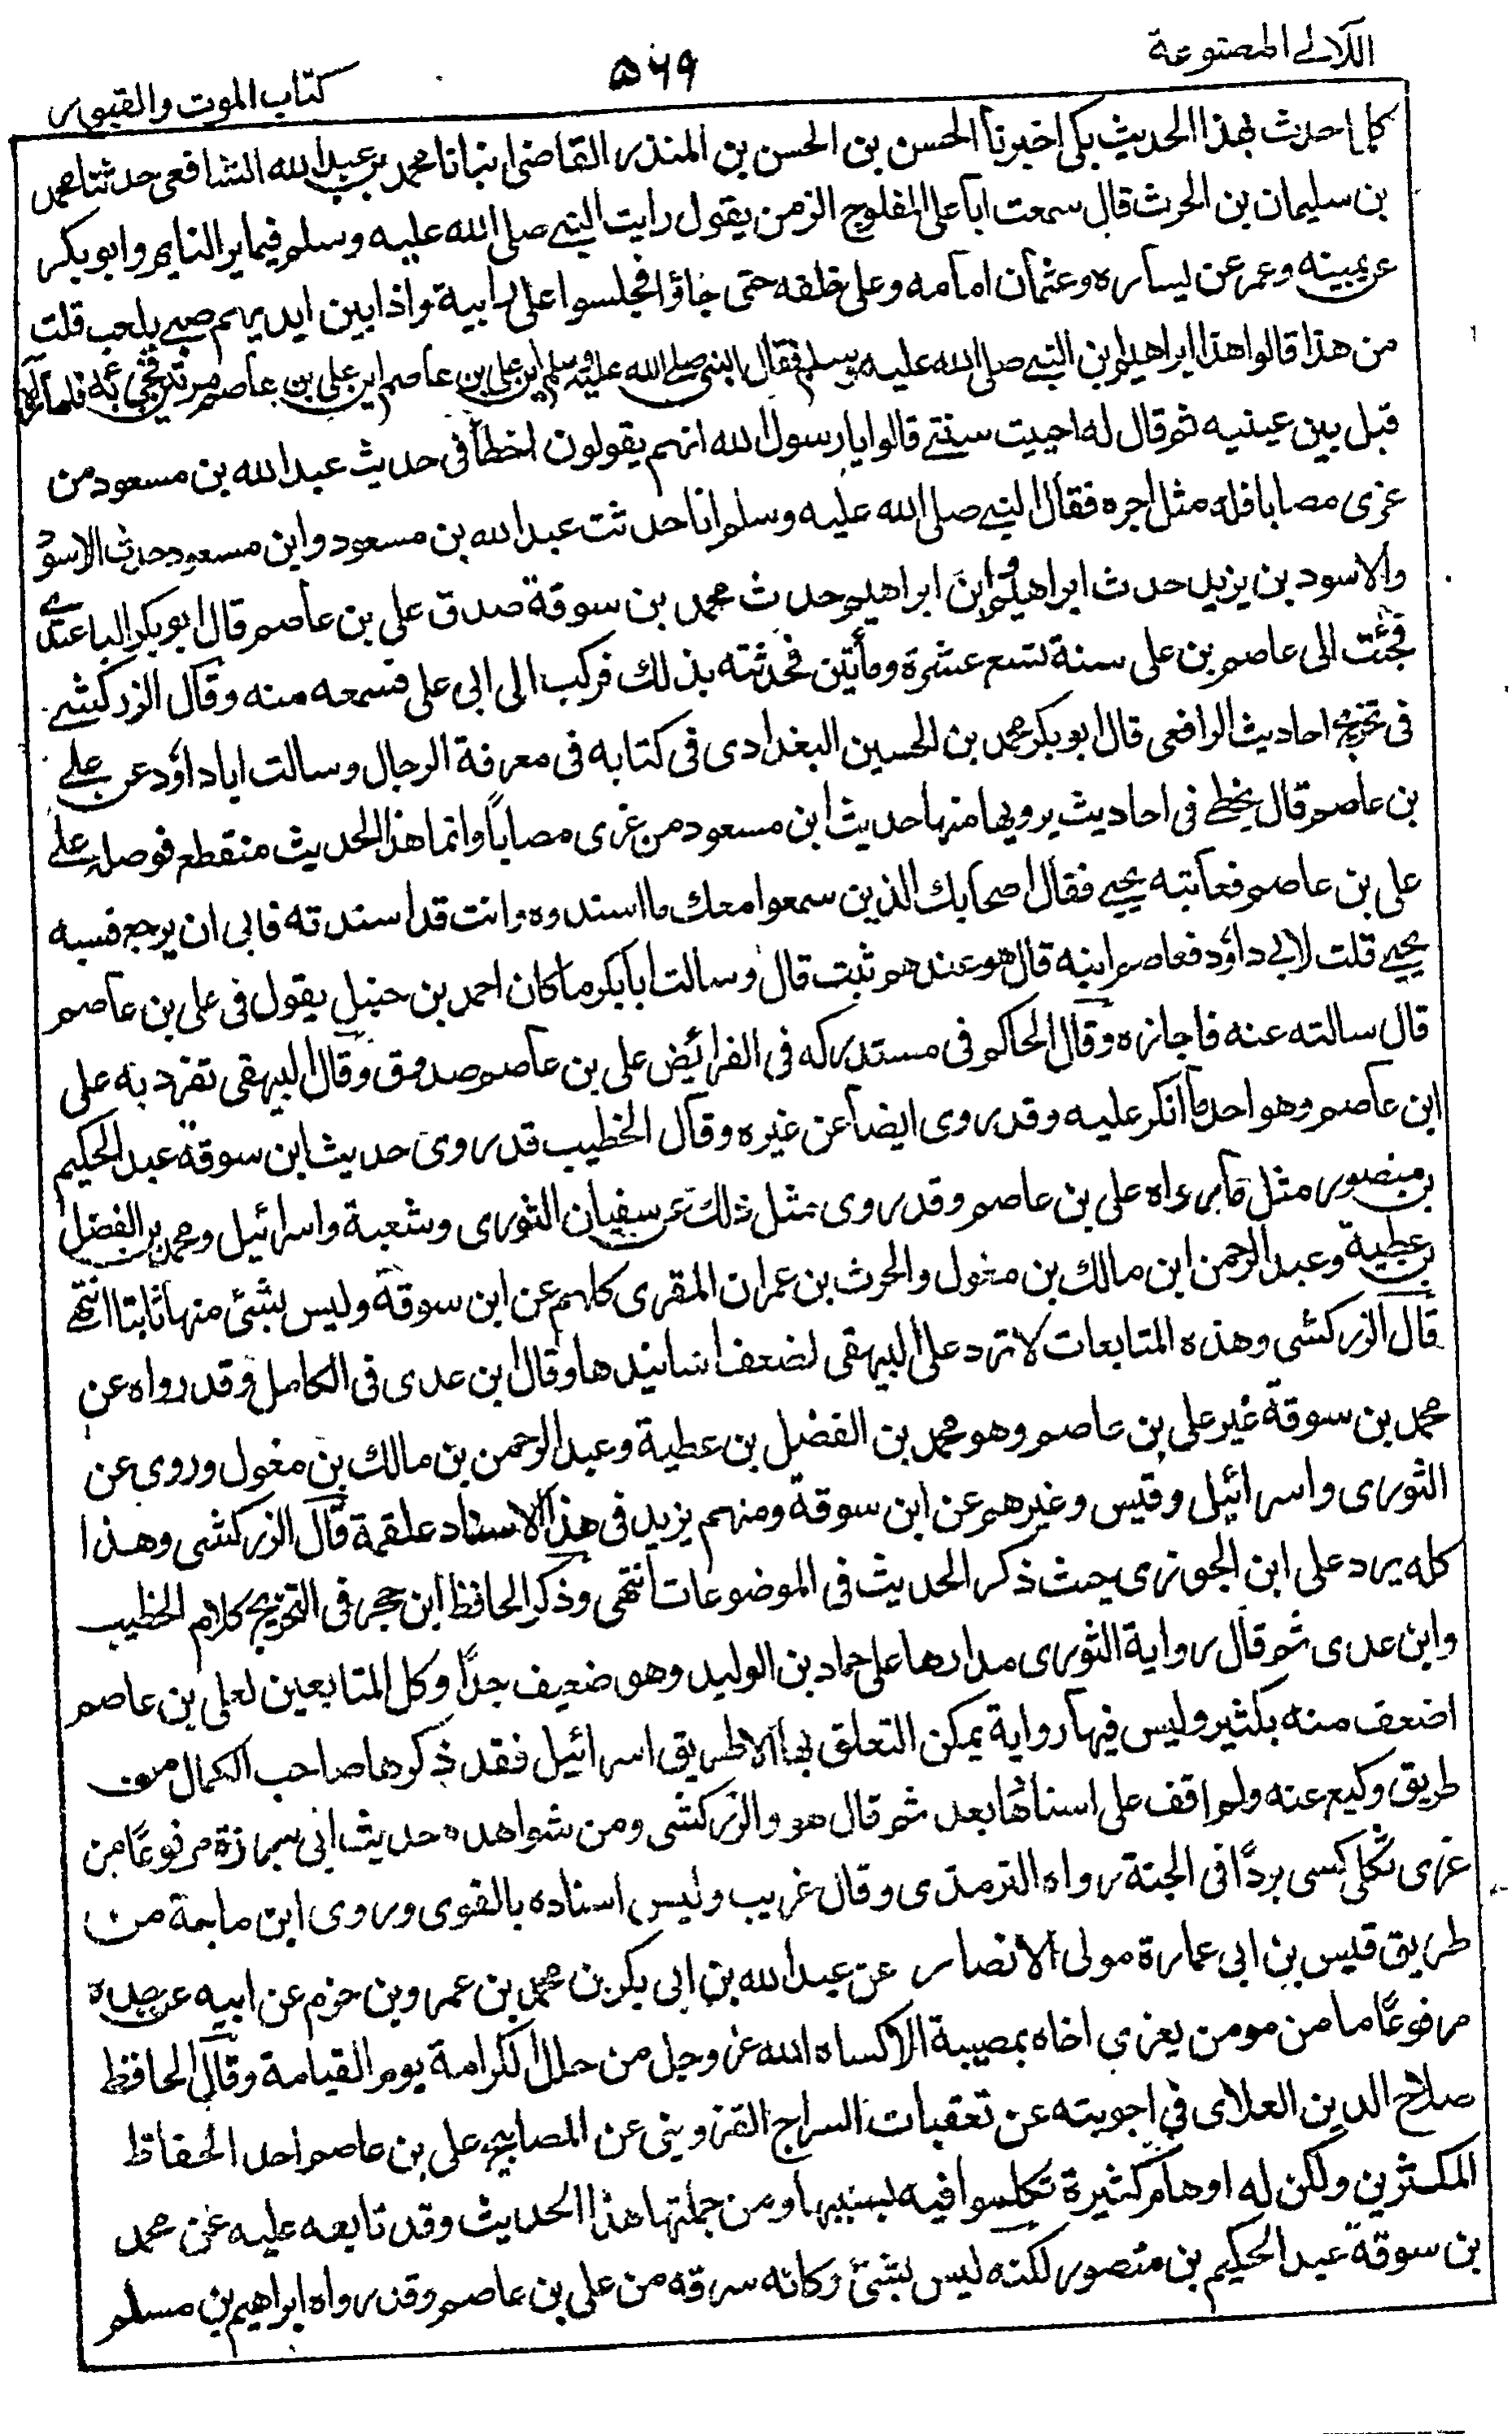 اللآلے المصنوعة
۵۶۹
كتاب الموت والقبور
كلما حدث بهذا الحديث بكى اخبرنا الحسن بن الحسن بن المنذر القاضى انبانا محمد بن عبد الله الشافعى حدثنا محمد
بن سليمان بن الحرث قال سمعت ابا على المفلوج الزمن يقول رايت النبى صلى الله عليه وسلم فيما يرالنايم وابو بكر
عن يمينه وعمر عن يساره وعثمان امامه وعلى خلفه حتى جاؤا فجلسوا على رابية واذا بين ايديهم صبى يلعب قلت
من هذا قالوا هذا ابراهيم ابن النبى صلى الله عليه وسلم فقال النبى صلے الله عليه وسلم اين على بن عاصم اين على بن عاصم مرتين فجئ به فلما رآه
قبل بين عينيه ثم قال له احييت سنتے قالوا يا رسول الله انهم يقولون اخطأ فى حديث عبد الله بن مسعود من
عزى مصابا فله مثل اجره فقال النبے صلى الله عليه وسلم انا حدثت عبد الله بن مسعود وابن مسعود حدث الاسود
والاسود بن يزيد حدث ابراهيم وان ابراهيم حدث محمد بن سوقة صدق على بن عاصم قال ابو بكر الباغندے
فجئت الى عاصم بن على سنة تسع عشرة ومأتين فحدثته بذلك فركب الى ابى على فسمعه منه وقال الزركشے
فى تخريج احاديث الرافعى قال ابو بكر محمد بن الحسين البغدادى فى كتابه فى معرفة الرجال وسالت اباداؤد عن علے
بن عاصم قال يخطے فى احاديث يرويها منها حديث ابن مسعود من عزى مصاباً وانما هذا الحديث منقطع فوصله علے
على بن عاصم فعاتبه يحيے فقال اصحابك الذين سمعوا معك ما اسندوه وانت قد اسندته فابى ان يرجع فسبه
يحيے قلت لابى داؤد فعاصم ابنه قال هو عندهم ثبت قال وسالت ابا بكر ما كان احمد بن حنبل يقول فى على بن عاصم
قال سالته عنه فاجازه وقال الحاكم فى مستدركه فى الفرائض على بن عاصم صدوق وقال البيهقى تفرد به على
ابن عاصم وهو احد ما انكر عليه وقد روى ايضاً عن غيره وقال الخطيب قد روى حديث ابن سوقة عبد الحكيم
بن منصور مثل ما رواه على بن عاصم وقد روى مثل ذلك عن سفيان الثورى وشعبة واسرائيل ومحمد بن الفضل
بن عطية وعبد الرحمن ابن مالك بن مغول والحرث بن عمران المقرى كلهم عن ابن سوقة وليس بشئ منها ثابتا انتهى
قال الزركشى وهذه المتابعات لا ترد على البيهقى لضعف اسانيدها وقال ابن عدى فى الكامل وقد رواه عن
محمد بن سوقة غير على بن عاصم وهو محمد بن الفضل بن عطية وعبد الرحمن بن مالك بن مغول وروى عن
الثورى واسرائيل وقيس وغيرهم عن ابن سوقة ومنهم يزيد فى هذا الاسناد علقمة قال الزركشى وهذا
كله يرد على ابن الجوزى حيث ذكر الحديث فى الموضوعات انتهى وذكر الحافظ ابن حجر فى التخريج كلام الخطيب
وابن عدى ثم قال رواية الثورى مدارها على حماد بن الوليد وهو ضعيف جداً وكل المتابعين لعلى بن عاصم
اضعف منه بكثير وليس فيها رواية يمكن التعلق بها الا طريق اسرائيل فقد ذكرها صاحب الكمال من
طريق وكيع عنه ولم اقف على اسنادها بعد ثم قال هو والزركشى ومن شواهده حديث ابى برزة مرفوعاً من
عزى ثكلى كسى برداً فى الجنة رواه الترمذى وقال غريب وليس اسناده بالقوى وروى ابن ماجة من
طريق قيس بن ابى عمارة مولى الانصار عن عبد الله بن ابى بكر بن محمد بن عمرو بن حزم عن ابيه عن جده
مرفوعاً ما من مومن يعزى اخاه بمصيبة الا كساه الله عز وجل من حلل الكرامة يوم القيامة وقال الحافظ
صلاح الدين العلاى فى اجوبته عن تعقبات السراج القزوينى عن المصابيح على بن عاصم احد الحفاظ
المكثرين ولكن له اوهام كثيرة تكلموا فيه بسببها ومن جملتها هذا الحديث وقد تابعه عليه عن محمد
بن سوقة عبد الحكيم بن منصور لكنه ليس بشئ وكانه سرقه من على بن عاصم وقد رواه ابراهيم بن مسلم